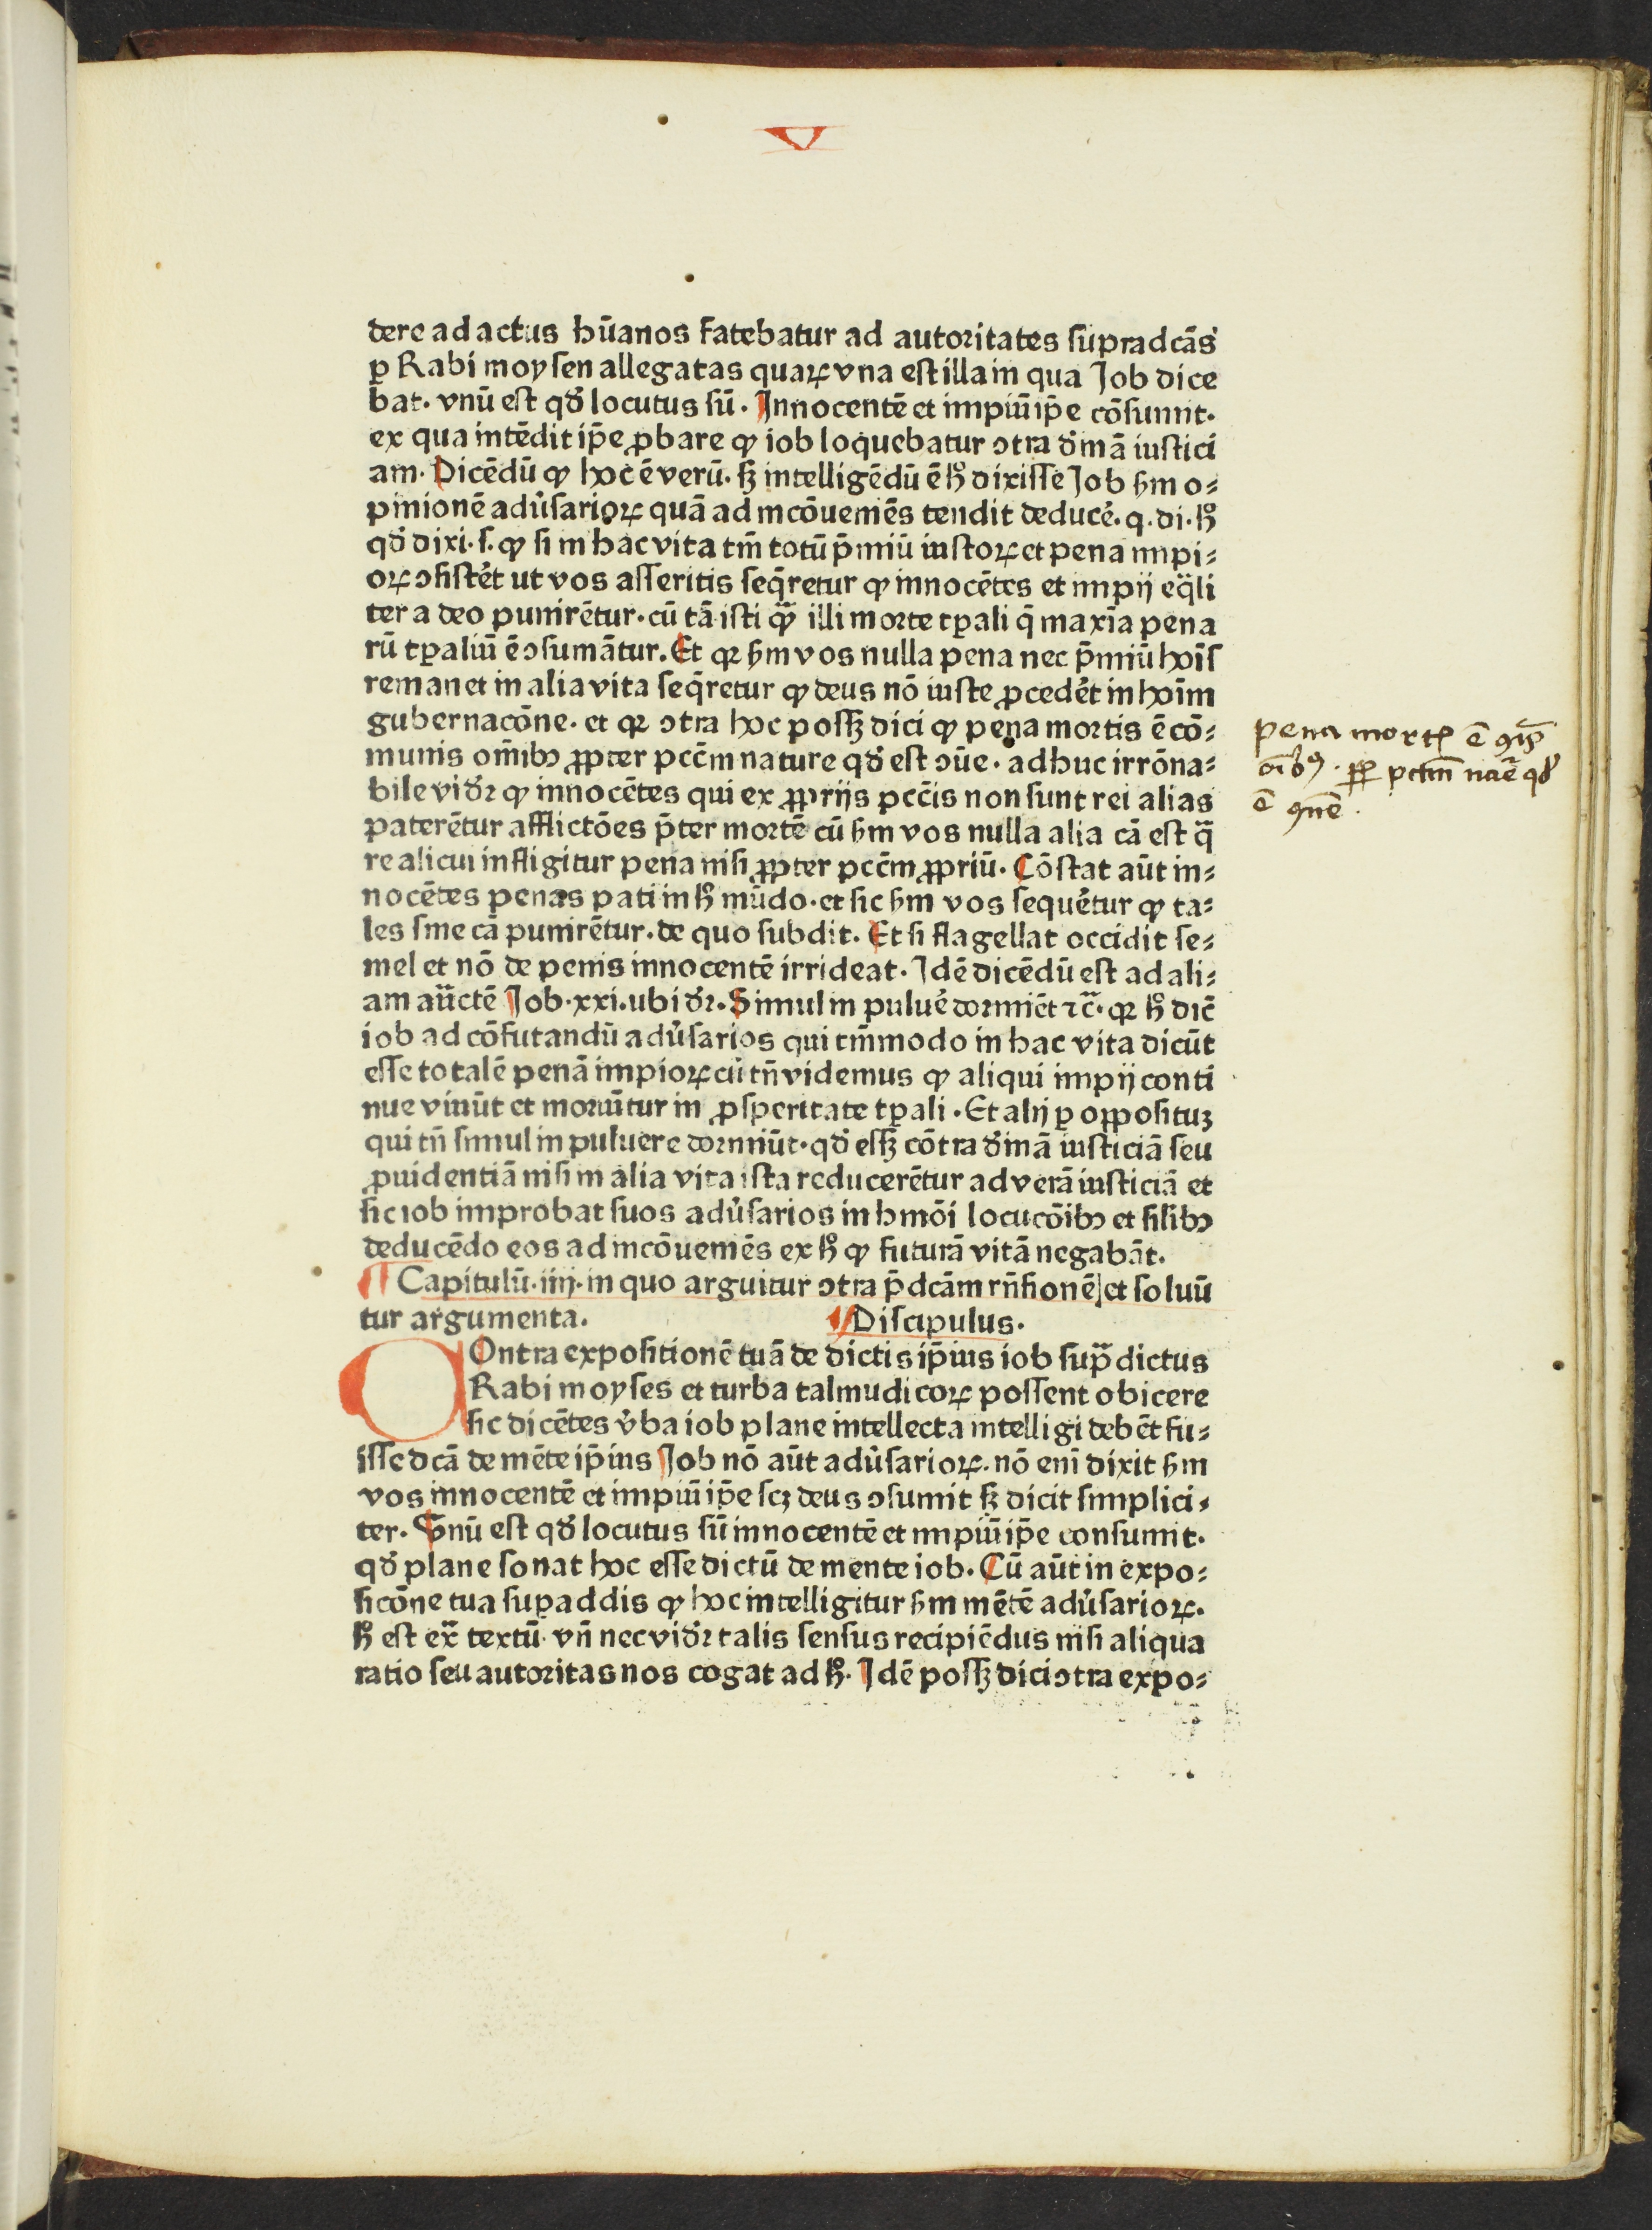 V
dere ad actus hūanos fatebatur ad autoritates supradcās
ꝑ Rabi moysen allegatas quaꝝ vna est illa in qua Job dice
bat. vnū est qđ locutus sū. Innocentē et impiū ip̄e cōsumit.
ex qua intēdit ip̄e ꝓbare ꝙ iob loquebatur ↄtra diuīnā iustici
am. Dicēdū ꝙ hoc ē verū. sꝫ intelligēdū ē hͦ dixisse Job ẜm o⸗
pinionē adu̓sarioꝝ quā ad incōueniēs tendit deduce̓. q. di. hͦ
qđ dixi. s. ꝙ si in hac vita tm̄ totū p̄miū iustoꝝ et pena impi⸗
oꝝ ↄsiste̓t ut vos asseritis seq̄retur ꝙ innocētes et impij eq̄li
ter a deo punirētur. cū tā isti qͣꝫ illi morte tꝑali q̄ maxīa pena
rū tꝑaliū ē ↄsumātur. Et qꝛ ẜm vos nulla pena nec p̄miū hoīs
remanet in alia vita seq̄retur ꝙ deus nō iuste ꝓcede̓t in hoīm
gubernacōne. et qꝛ ↄtra hoc possꝫ dici ꝙ pena mortis ē cō⸗
munis om̄ibꝫ ꝓpter pcc̄m nature qđ est ↄūe. adhuc irrōna⸗
bile vidꝛ ꝙ innocētes qui ex ꝓprijs pcc̄is non sunt rei alias
paterētur afflictōes p̄ter mortē cū ẜm vos nulla alia cā est qͣ
re alicui infligitur pena nisi ꝓpter pcc̄m ꝓpriū. Cōstat aūt in⸗
nocētes penas pati in hͦ mūdo. et sic ẜm vos seque̓tur ꝙ ta⸗
les sine cā punirētur. de quo subdit. Et si flagellat occidit se⸗
mel et nō de penis innocentē irrideat. Idē dicēdū est ad ali⸗
am au̅ctē Job. xxi. ubi dꝛ. Simul in pulue̓ dormiēt ⁊c̄. qꝛ hͦ dic̄
iob ad cōfutandū adu̓sarios qui tm̄modo in hac vita dicūt
esse totalē penā impioꝝ cū tn̄ videmus ꝙ aliqui impij conti
nue viuūt et moriūtur in ꝓsperitate tꝑali. Et alij ꝑ oppositūꝫ
qui tn̄ simul in puluere dormiūt. qđ essꝫ cōtra diuinā iusticiā seu
ꝓuidentiā nisi in alia vita ista reducerētur ad verā iusticiā et
sic iob improbat suos adu̓sarios in hmōi locucōibꝫ et silibꝫ
deducēdo eos ad incōueniēs ex hͦ ꝙ futurā vitā negabāt.
¶ Capitulū. iiij. in quo arguitur ↄtra p̄dcām rn̄sionē et soluū
tur argumenta. ¶ Discipulus.
COntra expositionē tuā de dictis ip̄ius iob supͣdictus
Rabi moyses et turba talmudicoꝝ possent obicere
sic dicētes v̓ba iob plane intellecta intelligi debēt fu⸗
isse dcā de mēte ip̄ius Job nō aūt adu̓sarioꝝ. nō enī dixit ẜm
vos innocentē et impiū ip̄e scꝫ deus ↄsumit sꝫ dicit simplici⸗
ter. Vnū est qđ locutus sū innocentē et impiū ip̄e consumit.
qđ plane sonat hoc esse dictū de mente iob. Cū aūt in expo⸗
sicōne tua suꝑaddis ꝙ hoc intelligitur ẜm mētē adu̓sarioꝝ.
hͦ est exͣ textū. vn̄ nec vidꝛ talis sensus recipiēdus nisi aliqua
ratio seu autoritas nos cogat ad hͦ. Idē possꝫ dici ↄtra expo⸗
pena mortꝭ ē ꝯīs
oībꝰ. ꝓpꝑ pctm̄ nāe qđ
ē ꝯūe.